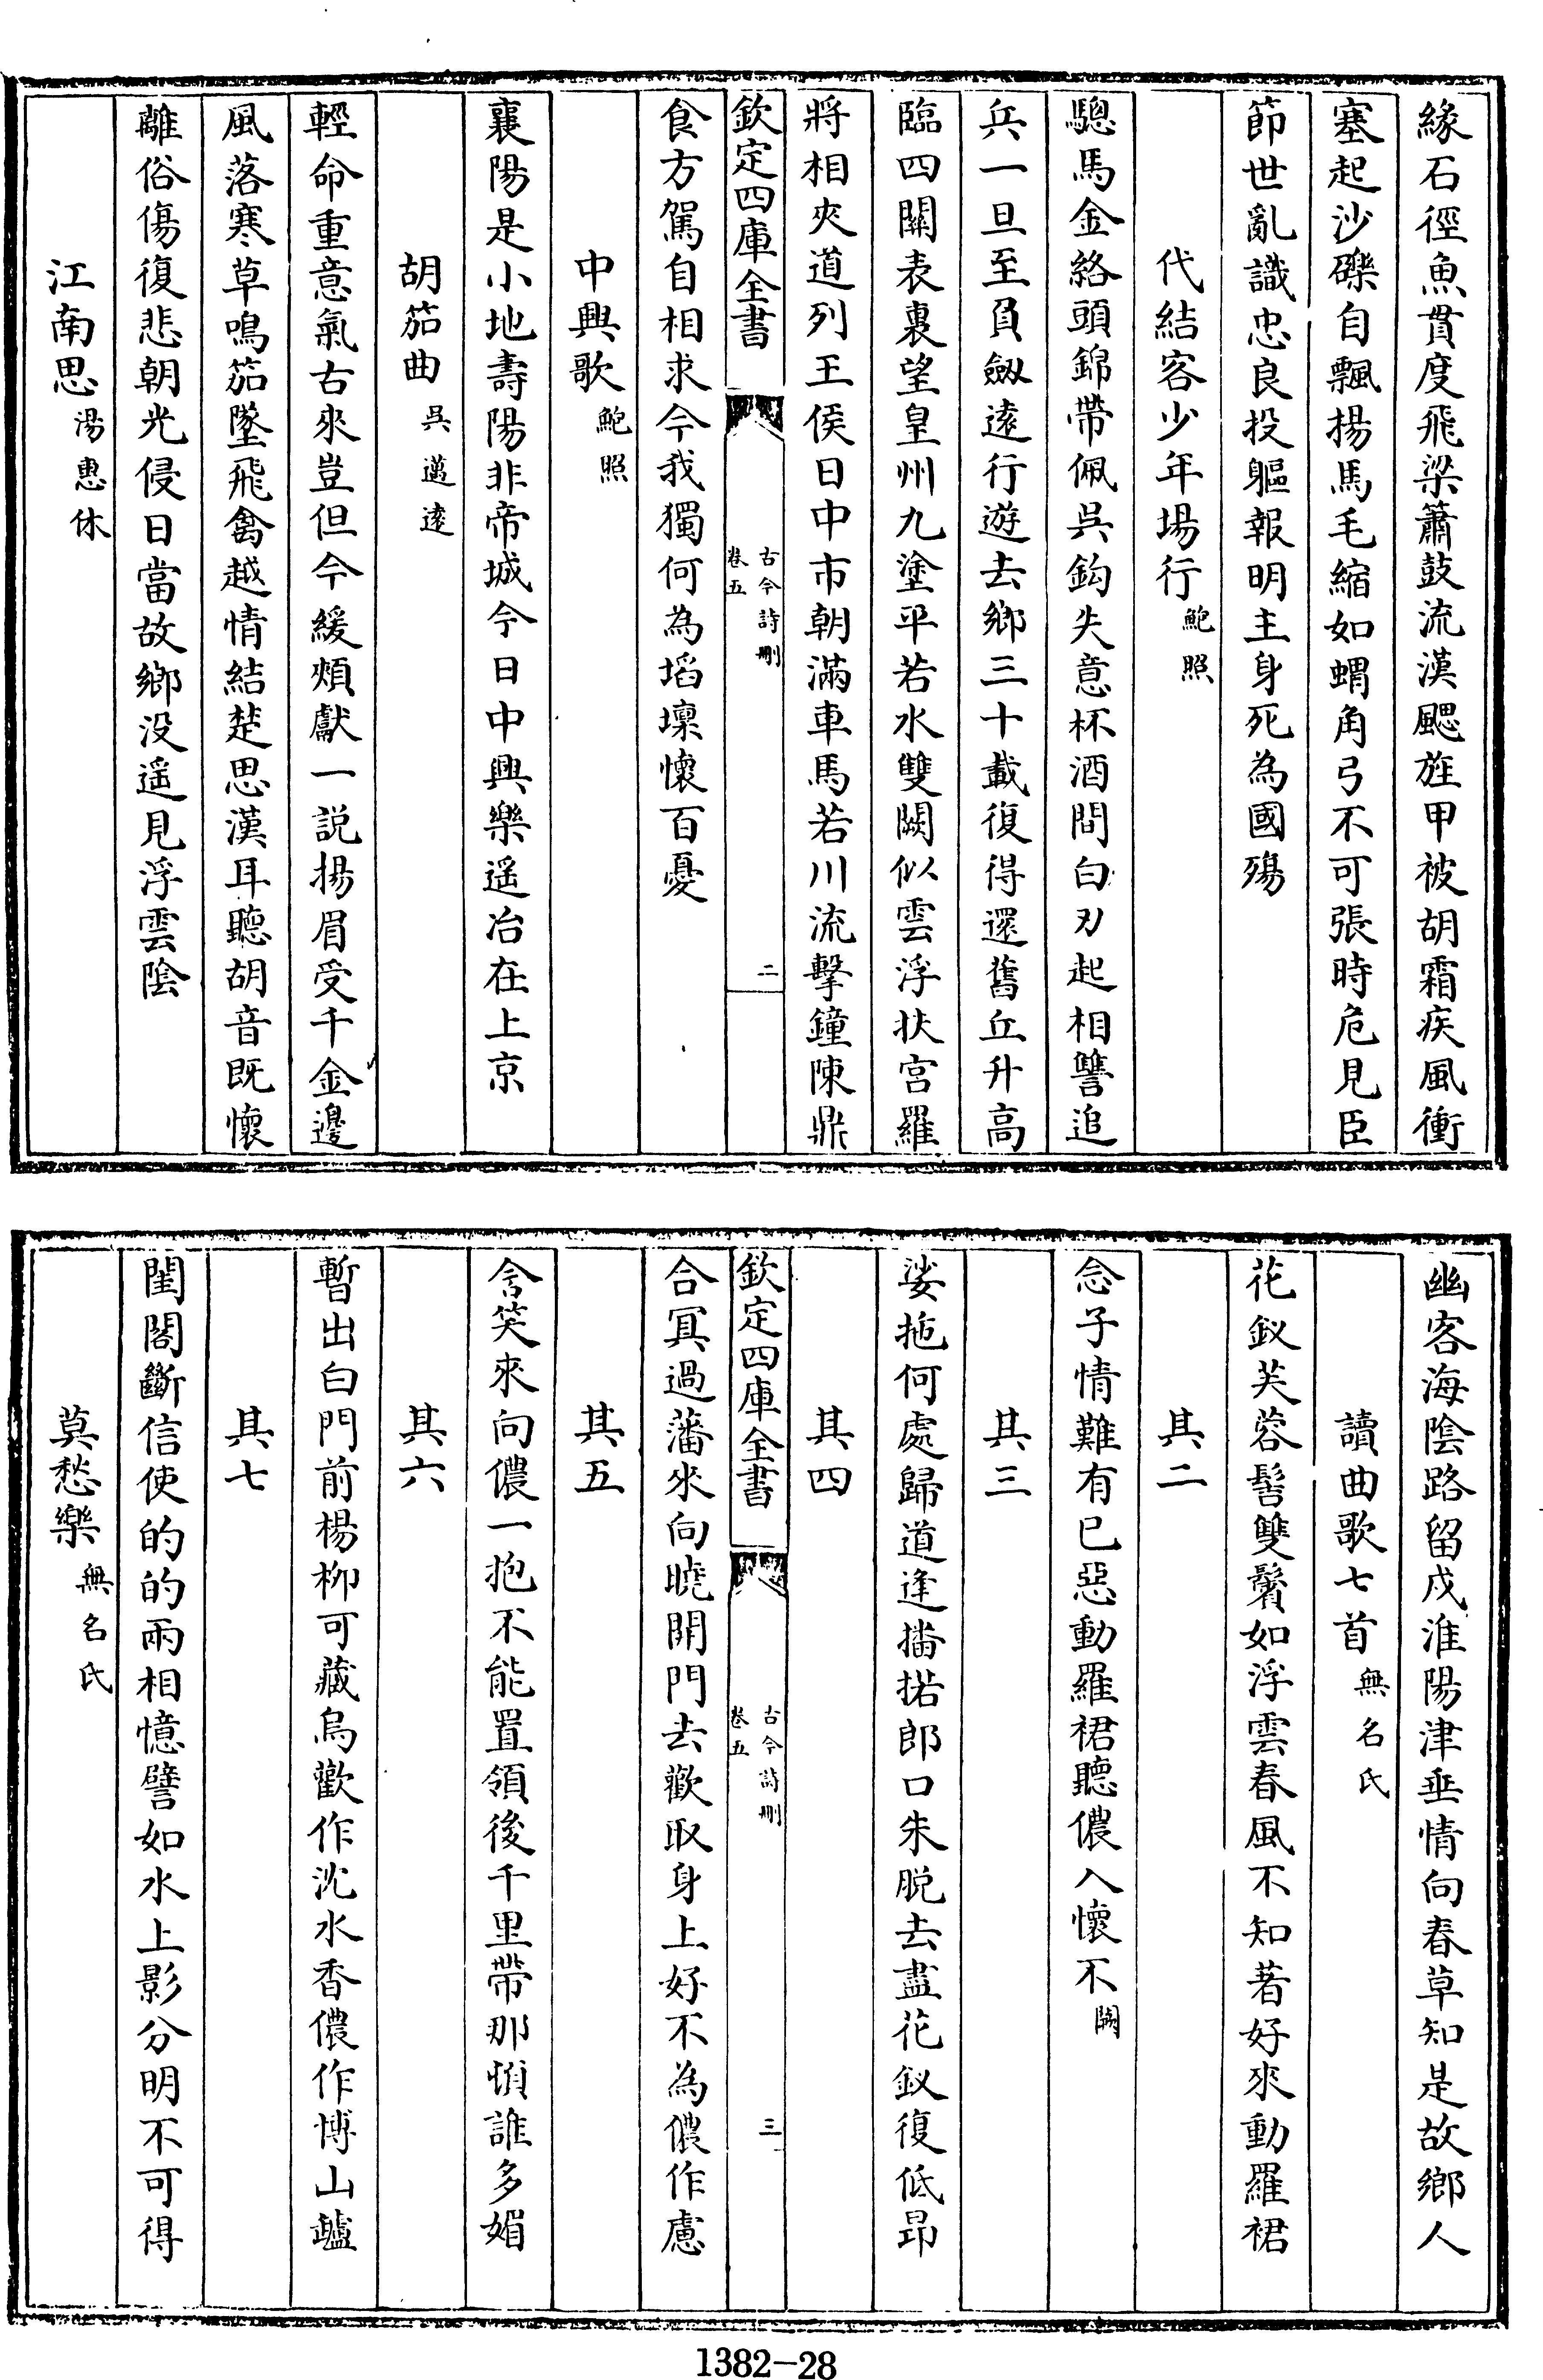 緣石徑魚貫度飛梁簫鼓流漢颸旌甲被胡霜疾風衝
塞起沙礫自飄揚馬毛縮如蝟角弓不可張時危見臣
節世亂識忠良投軀報明主身死為國殤
代結客少年場行鮑照
驄馬金絡頭錦帶佩吳鈎失意杯酒間白刃起相讐追
兵一旦至負劔逺行遊去鄉三十載復得還舊丘升高
臨四關表裏望皇州九塗平若水雙闕似雲浮扶宮羅
將相夾道列王侯日中市朝滿車馬若川流擊鐘陳鼎
欽定四庫全書
古今詩刪
卷五
二
食方駕自相求今我獨何為埳壈懷百憂
中興歌鮑照
襄陽是小地壽陽非帝城今日中興樂遥冶在上京
胡笳曲吳邁逺
輕命重意氣古來豈但今緩頰獻一説揚眉受千金邊
風落寒草鳴笳墜飛禽越情結楚思漢耳聽胡音既懷
離俗傷復悲朝光侵日當故鄉沒遥見浮雲隂
江南思湯惠休
幽客海隂路留戍淮陽津垂情向春草知是故鄉人
讀曲歌七首無名氏
花釵芙蓉髻雙鬢如浮雲春風不知著好來動羅裙
其二
念子情難有已惡動羅裙聽儂入懷不闕
其三
娑拖何處歸道逢播掿郎口朱脱去盡花釵復低昂
其四
欽定四庫全書
古今詩刪
卷五
三
合冥過藩來向曉開門去歡取身上好不為儂作慮
其五
含笑來向儂一抱不能置領後千里帶那頓誰多媚
其六
暫出白門前楊柳可藏烏歡作沈水香儂作博山罏
其七
閨閤斷信使的的兩相憶譬如水上影分明不可得
莫愁樂無名氏
1382-28